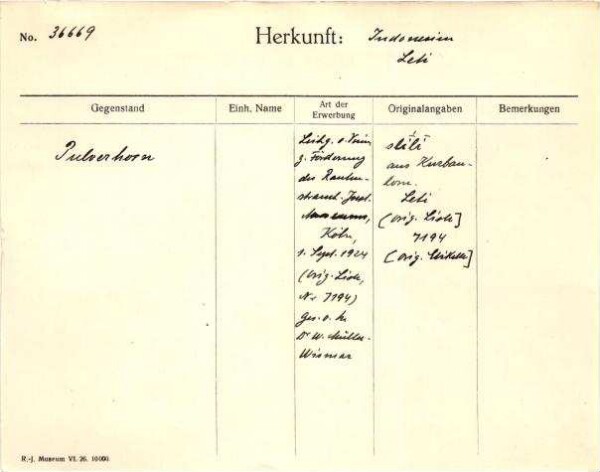 No. 36669
Herkunft: Indonesien
Leti
Gegenstand
Einh. Name
Art der
Erwerbung
Originalangaben
Bemerkungen
Pulverhorn
Leihg. v. Verein
z. Förderung
des Rauten-
strauch-Joest-
Museums,
Köln,
1. Sept. 1924
(orig. Liste,
Nr. 7194)
Ges. v. h.
Dr W. Müller-
Wismar
stili
aus Kurbau-
horn.
Leti
(orig. Liste]
7194
(orig. Etikette]
R.-J. Museum VI. 26. 10000